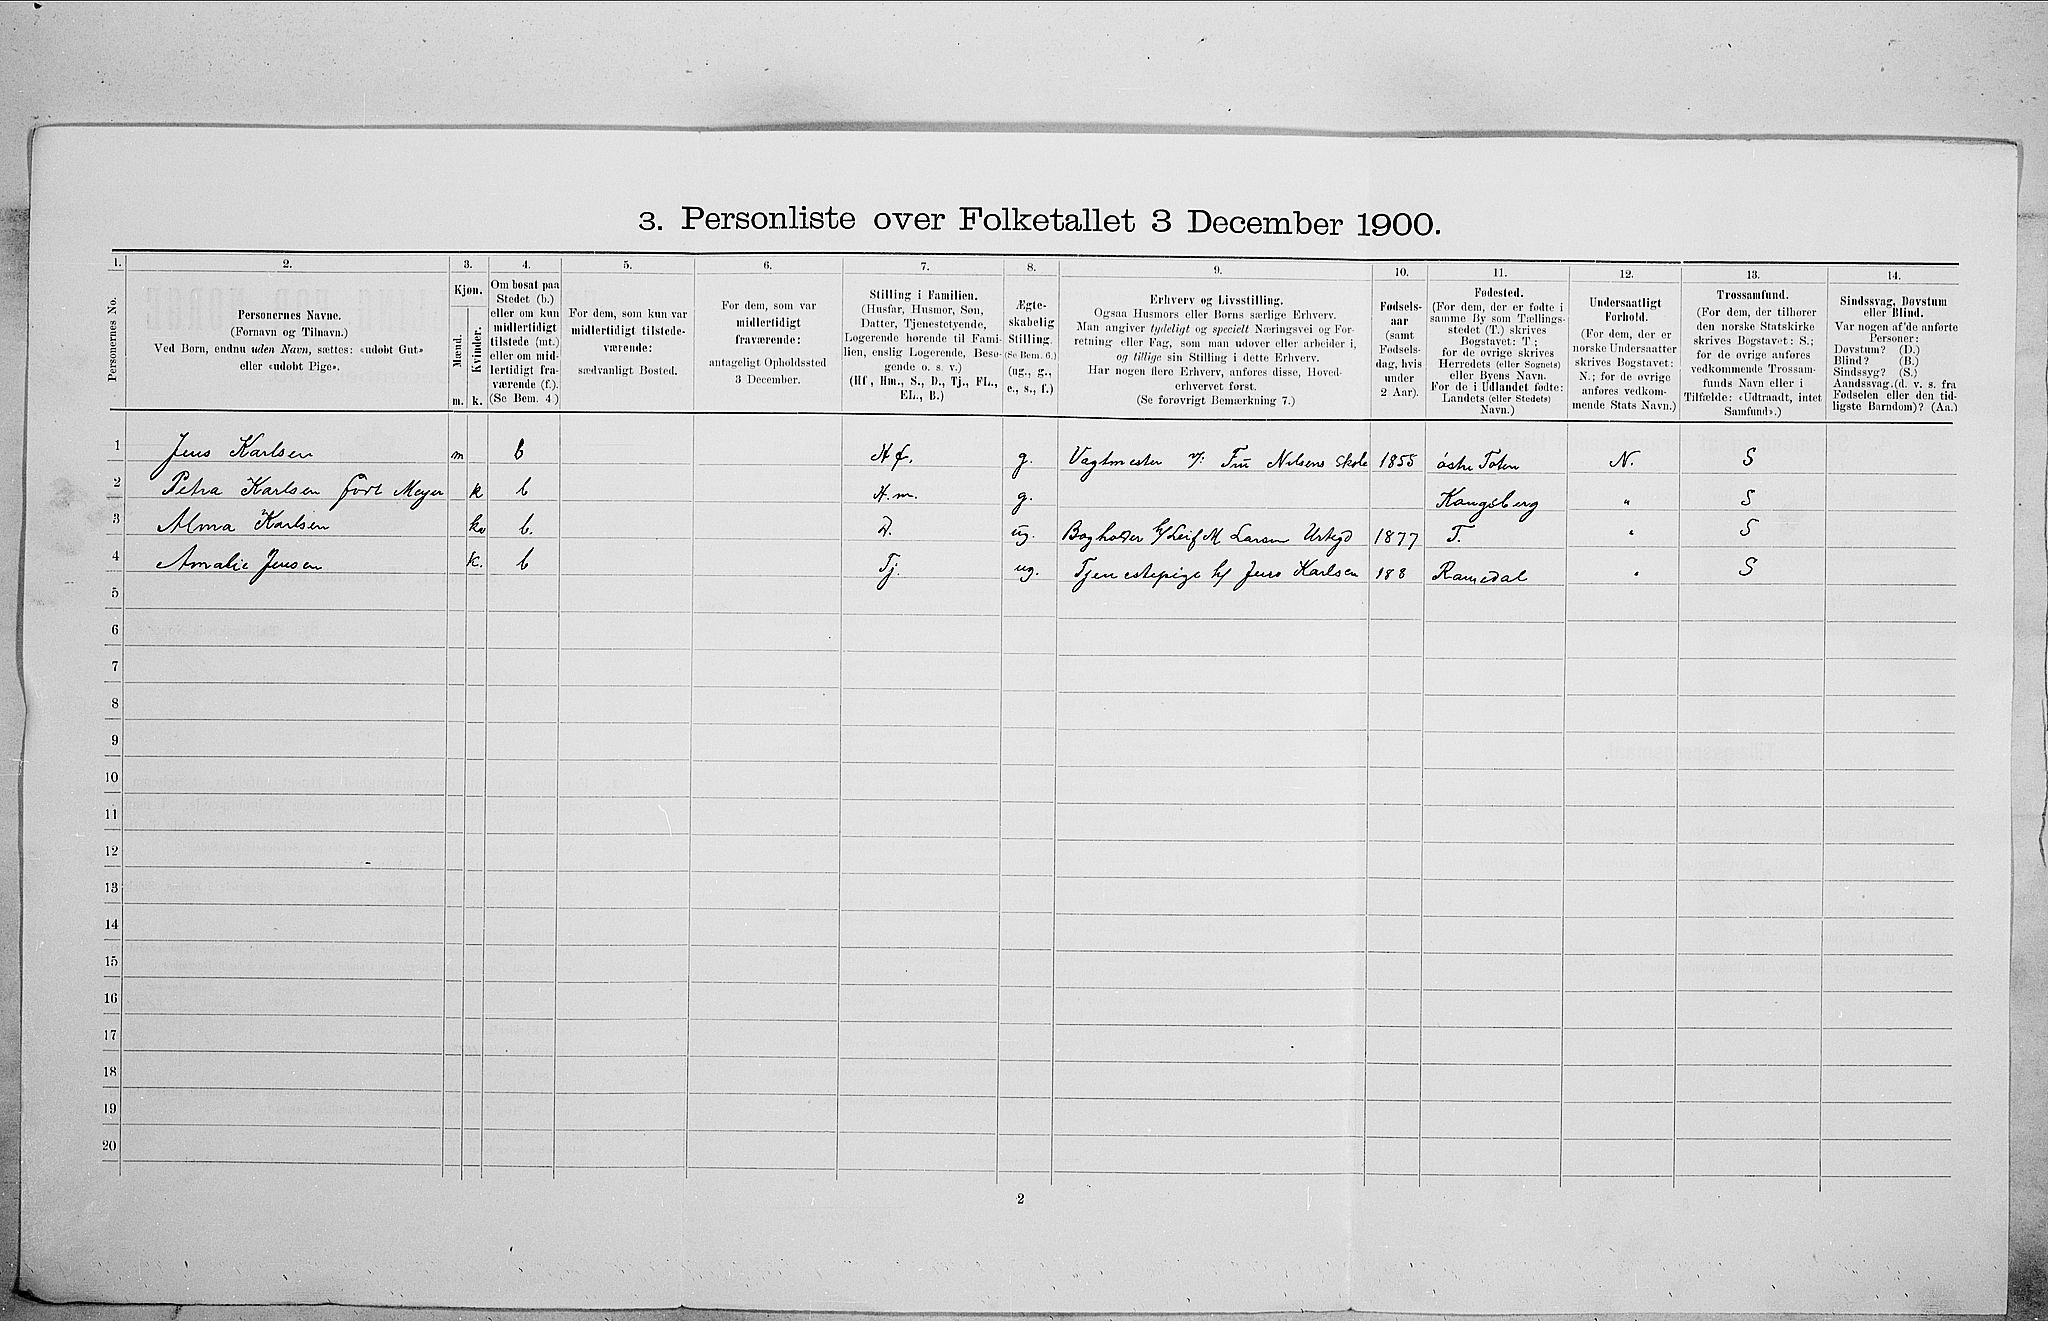 3. Personliste over Folketallet 3 December 1900.
1. 2. 3. 4. 5. 6. 7. 8. 9. 10. 11. 12. 13. 14.
Personernes No.
Personernes Navne.
(Fornavn og Tilnavn.)
Ved Børn, endnu uden Navn, sættes: «udøbt Gut»
eller «udøbt Pige».
Kjøn.
Mænd.
Kvinder.
m. k.
Om bosat paa
Stedet (b.)
eller om kun
midlertidigt
tilstede (mt.)
eller om mid-
lertidigt fra-
værende (f.).
(Se Bem. 4.)
For dem, som kun var
midlertidigt tilstede-
værende:
sædvanligt Bosted.
For dem, som var
midlertidigt
fraværende:
antageligt Opholdssted
3 December.
Stilling i Familien.
(Husfar, Husmor, Søn,
Datter, Tjenestetyende,
Logerende hørende til Fami-
lien, enslig Logerende, Besø-
gende o. s. v.)
(Hf., Hm., S., D., Tj., FL.,
EL., B.)
Ægte-
skabelig
Stilling.
(Se Bem. 6.)
(ug., g.,
e., s., f.)
Erhverv og Livsstilling.
Ogsaa Husmors eller Børns særlige Erhverv.
Man angiver tydeligt og specielt Næringsvei og For-
retning eller Fag, som man udøver eller arbeider i,
og tillige sin Stilling i dette Erhverv.
Har nogen flere Erhverv, anføres disse, Hoved-
erhvervet først.
(Se forøvrigt Bemærkning 7.)
Fødsels-
aar
(samt
Fødsels-
dag, hvis
under
2 Aar).
Fødested.
(For dem, der er fødte i
samme By som Tællings-
stedet (T.) skrives
Bogstavet: T;
for de øvrige skrives
Herredets (eller Sognets)
eller Byens Navn.
For de i Udlandet fødte:
Landets (eller Stedets)
Navn.)
Undersaatligt
Forhold.
(For dem, der er
norske Undersaatter
skrives Bogstavet:
N.; for de øvrige
anføres vedkom-
mende Stats Navn.)
Trossamfund.
(For dem, der tilhører
den norske Statskirke
skrives Bogstavet: S.;
for de øvrige anføres
vedkommende Trossam-
funds Navn eller i
Tilfælde: «Udtraadt, intet
Samfund».)
Sindssvag, Døvstum
eller Blind.
Var nogen af de anførte
Personer:
Døvstum? (D.)
Blind? (B.)
Sindssyg? (S.)
Aandssvag (d. v. s. fra
Fødselen eller den tid-
ligste Barndom)? (Aa.)
1 Jens Karlsen m b Hf. g. Vagtmester v: Fru Nilsens Skole 1855 østre Toten N. S
2 Petra Karlsen født Meyer k b H.m. g. Kongsberg " S
3 Alma Karlsen kv b. D. ug. Bogholder h/ Leif M Larsen 1877 T. " S
4 Amalie Jensen k. b Tj. ug. Tjenestepige h/ Jens Karlsen 188 " S
5
6
7
8
9
10
11
12
13
14
15
16
17
18
19
20
2